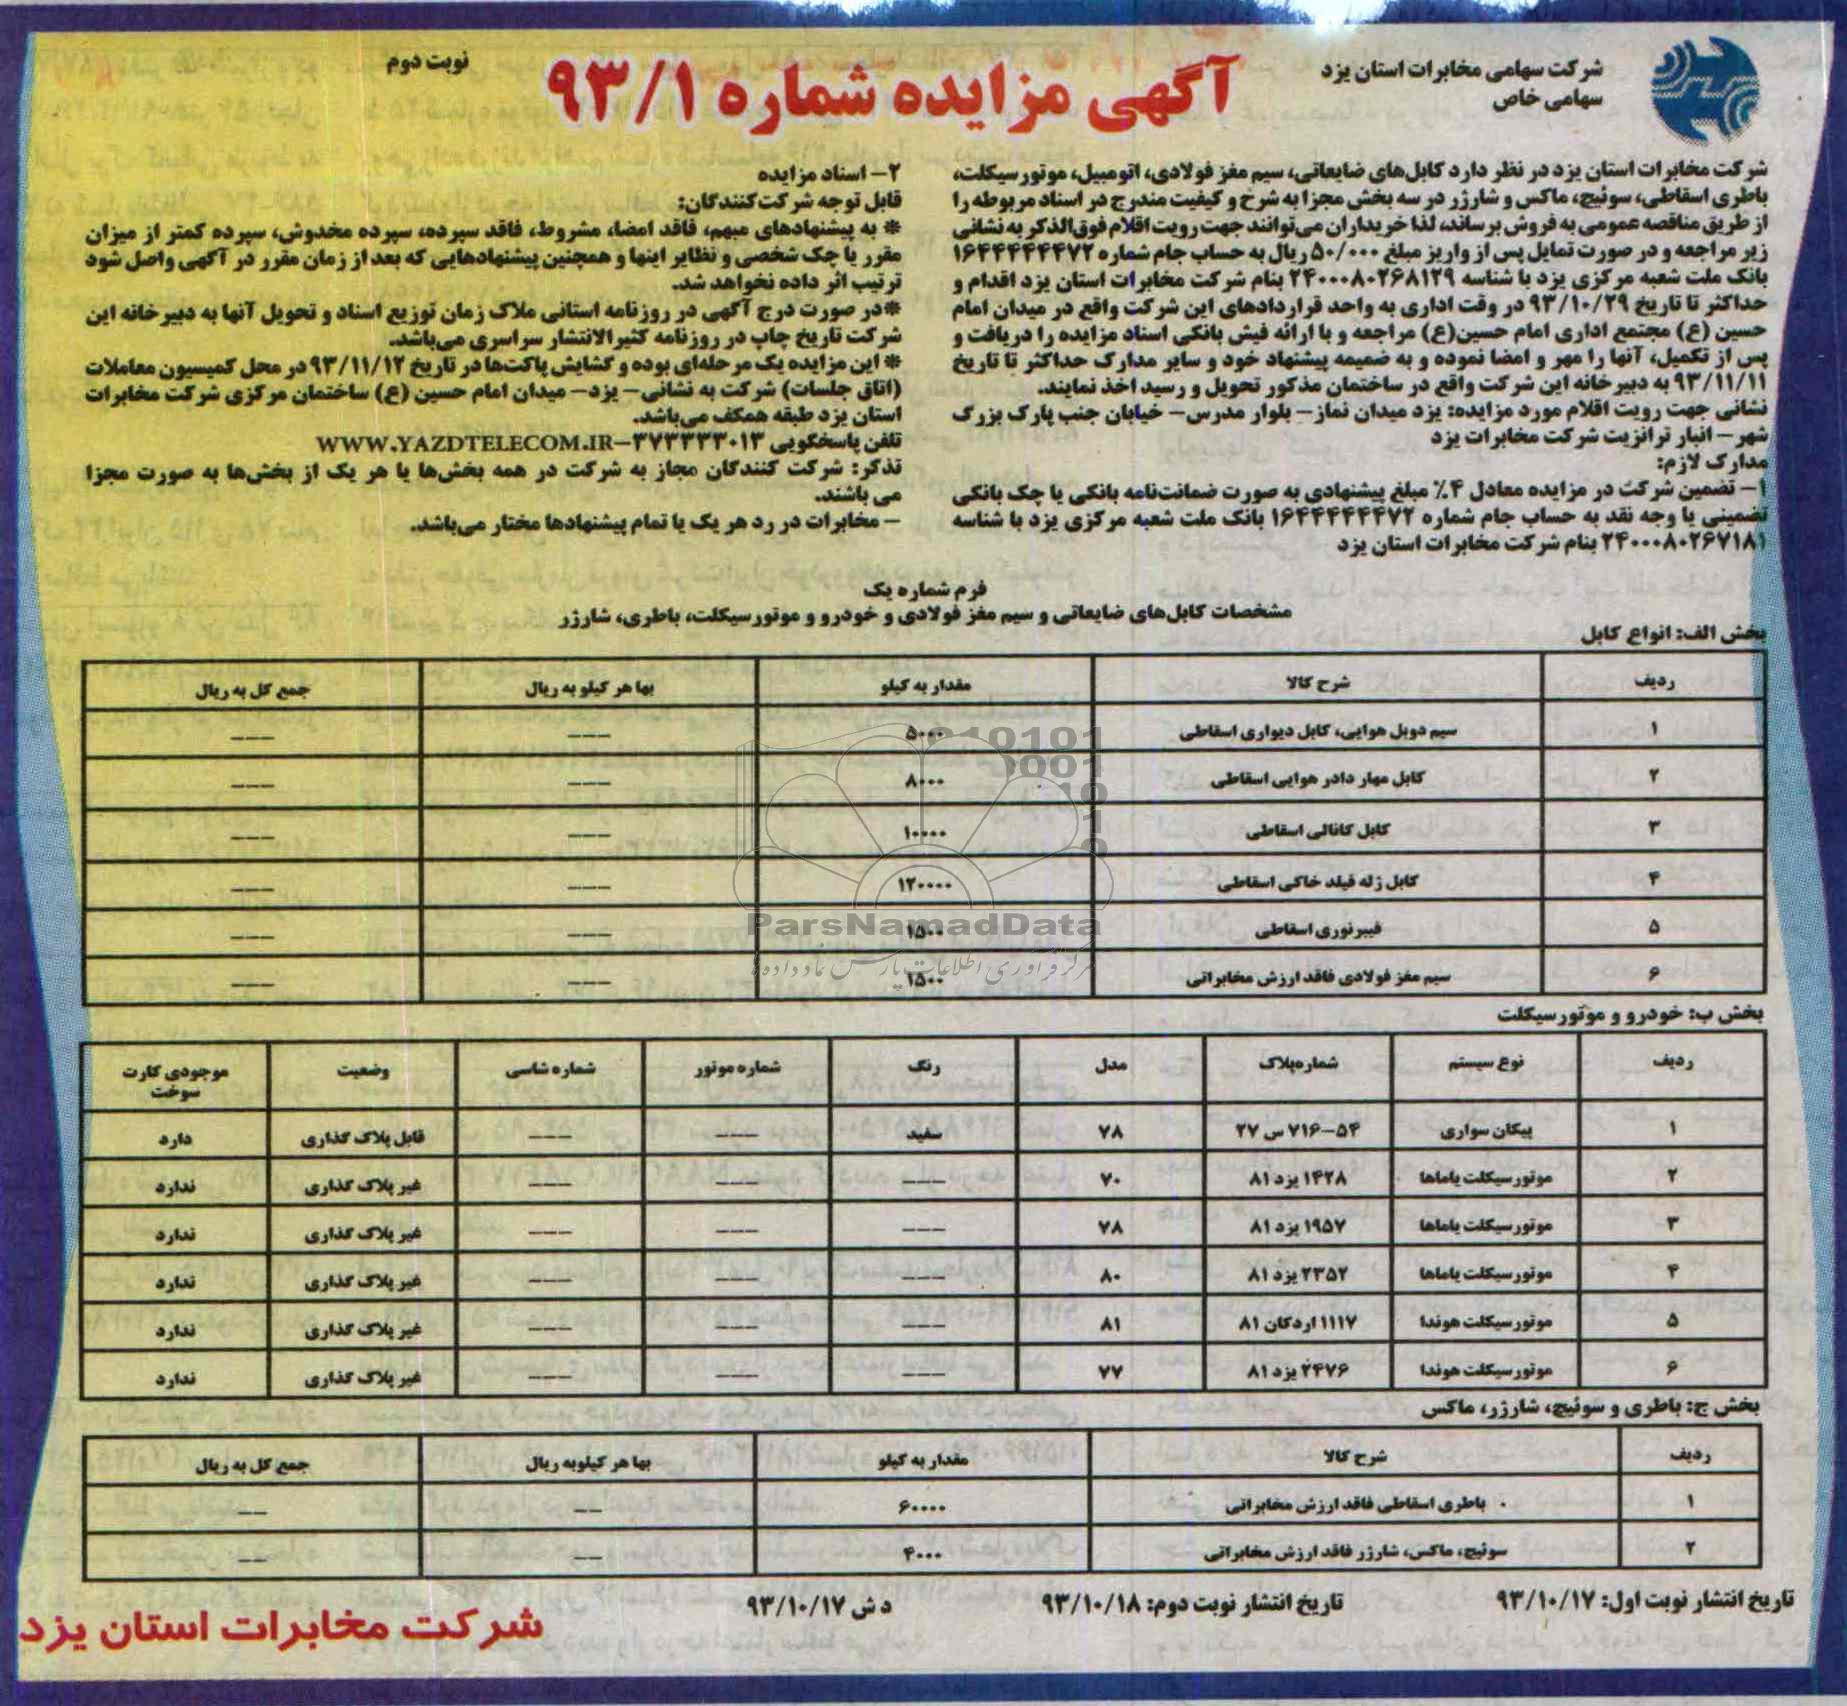 شرکت سهامی مخابرات استان یزد
سهامی خاص
آگهی مزایده شماره ۹۳/۱
نوبت دوم
شرکت مخابرات استان یزد در نظر دارد کابل‌های ضایعاتی، سیم مغز فولادی، اتومبیل، موتورسیکلت،
باطری اسقاطی، سوئیچ، ماکس و شارژر در سه بخش مجزا به شرح و کیفیت مندرج در اسناد مربوطه را
از طریق مناقصه عمومی به فروش برساند، لذا خریداران می‌توانند جهت رویت اقلام فوق‌الذکر به نشانی
زیر مراجعه و در صورت تمایل پس از واریز مبلغ ۵۰/۰۰۰ ریال به حساب جام شماره ۱۶۴۴۴۴۴۴۷۲
بانک ملت شعبه مرکزی یزد با شناسه ۲۴۰۰۰۸۰۲۶۸۱۲۹ بنام شرکت مخابرات استان یزد اقدام و
حداکثر تا تاریخ ۹۳/۱۰/۲۹ در وقت اداری به واحد قراردادهای این شرکت واقع در میدان امام
حسین (ع) مجتمع اداری امام حسین(ع) مراجعه و با ارائه فیش بانکی اسناد مزایده را دریافت و
پس از تکمیل، آنها را مهر و امضا نموده و به ضمیمه پیشنهاد خود و سایر مدارک حداکثر تا تاریخ
۹۳/۱۱/۱۱ به دبیرخانه این شرکت واقع در ساختمان مذکور تحویل و رسید اخذ نمایند.
نشانی جهت رویت اقلام مورد مزایده: یزد میدان نماز- بلوار مدرس- خیابان جنب پارک بزرگ
شهر- انبار ترانزیت شرکت مخابرات یزد
مدارک لازم:
۱- تضمین شرکت در مزایده معادل ۴٪ مبلغ پیشنهادی به صورت ضمانت‌نامه بانکی یا چک بانکی
تضمینی یا وجه نقد به حساب جام شماره ۱۶۴۴۴۴۴۴۷۲ بانک ملت شعبه مرکزی یزد با شناسه
۲۴۰۰۰۸۰۲۶۷۱۸۱ بنام شرکت مخابرات استان یزد
۲- اسناد مزایده
قابل توجه شرکت‌کنندگان:
* به پیشنهادهای مبهم، فاقد امضا، مشروط، فاقد سپرده، سپرده مخدوش، سپرده کمتر از میزان
مقرر یا چک شخصی و نظایر اینها و همچنین پیشنهادهایی که بعد از زمان مقرر در آگهی واصل شود
ترتیب اثر داده نخواهد شد.
*در صورت درج آگهی در روزنامه استانی ملاک زمان توزیع اسناد و تحویل آنها به دبیرخانه این
شرکت تاریخ چاپ در روزنامه کثیرالانتشار سراسری می‌باشد.
* این مزایده یک مرحله‌ای بوده و گشایش پاکت‌ها در تاریخ ۹۳/۱۱/۱۲ در محل کمیسیون معاملات
(اتاق جلسات) شرکت به نشانی- یزد- میدان امام حسین (ع) ساختمان مرکزی شرکت مخابرات
استان یزد طبقه همکف می‌باشد.
تلفن پاسخگویی ۳۷۳۳۳۳۰۱۳-WWW.YAZDTELECOM.IR
تذکر: شرکت کنندگان مجاز به شرکت در همه بخش‌ها یا هر یک از بخش‌ها به صورت مجزا
می باشند.
- مخابرات در رد هر یک یا تمام پیشنهادها مختار می‌باشد.
فرم شماره یک
مشخصات کابل‌های ضایعاتی و سیم مغز فولادی و خودرو و موتورسیکلت، باطری، شارژر
بخش الف: انواع کابل
ردیف شرح کالا مقدار به کیلو بها هر کیلو به ریال جمع کل به ریال
۱ سیم دوبل هوایی، کابل دیواری اسقاطی ۵۰۰۰ --- ---
۲ کابل مهار دادر هوایی اسقاطی ۸۰۰۰ --- ---
۳ کابل کانالی اسقاطی ۱۰۰۰۰ --- ---
۴ کابل ژله فیلد خاکی اسقاطی ۱۲۰۰۰۰ --- ---
۵ فیبرنوری اسقاطی ۱۵۰۰ --- ---
۶ سیم مغز فولادی فاقد ارزش مخابراتی ۱۵۰۰ --- ---
ParsNamadData
بخش ب: خودرو و موتورسیکلت
ردیف نوع سیستم شماره‌پلاک مدل رنگ شماره موتور شماره شاسی وضعیت موجودی کارت سوخت
۱ پیکان سواری ۵۴-۷۱۶ س ۲۷ ۷۸ سفید --- --- قابل پلاک گذاری دارد
۲ موتورسیکلت یاماها ۱۴۲۸ یزد ۸۱ ۷۰ --- --- --- غیر پلاک گذاری ندارد
۳ موتورسیکلت یاماها ۱۹۵۷ یزد ۸۱ ۷۸ --- --- --- غیر پلاک گذاری ندارد
۴ موتورسیکلت یاماها ۲۳۵۲ یزد ۸۱ ۸۰ --- --- --- غیر پلاک گذاری ندارد
۵ موتورسیکلت هوندا ۱۱۱۷ اردکان ۸۱ ۸۱ --- --- --- غیر پلاک گذاری ندارد
۶ موتورسیکلت هوندا ۲۴۷۶ یزد ۸۱ ۷۷ --- --- --- غیر پلاک گذاری ندارد
بخش ج: باطری و سوئیچ، شارژر، ماکس
ردیف شرح کالا مقدار به کیلو بها هر کیلوبه ریال جمع کل به ریال
۱ باطری اسقاطی فاقد ارزش مخابراتی ۶۰۰۰۰ -- --
۲ سوئیچ، ماکس، شارژر فاقد ارزش مخابراتی ۴۰۰۰ -- --
تاریخ انتشار نوبت اول: ۹۳/۱۰/۱۷ تاریخ انتشار نوبت دوم: ۹۳/۱۰/۱۸ د ش ۹۳/۱۰/۱۷
شرکت مخابرات استان یزد